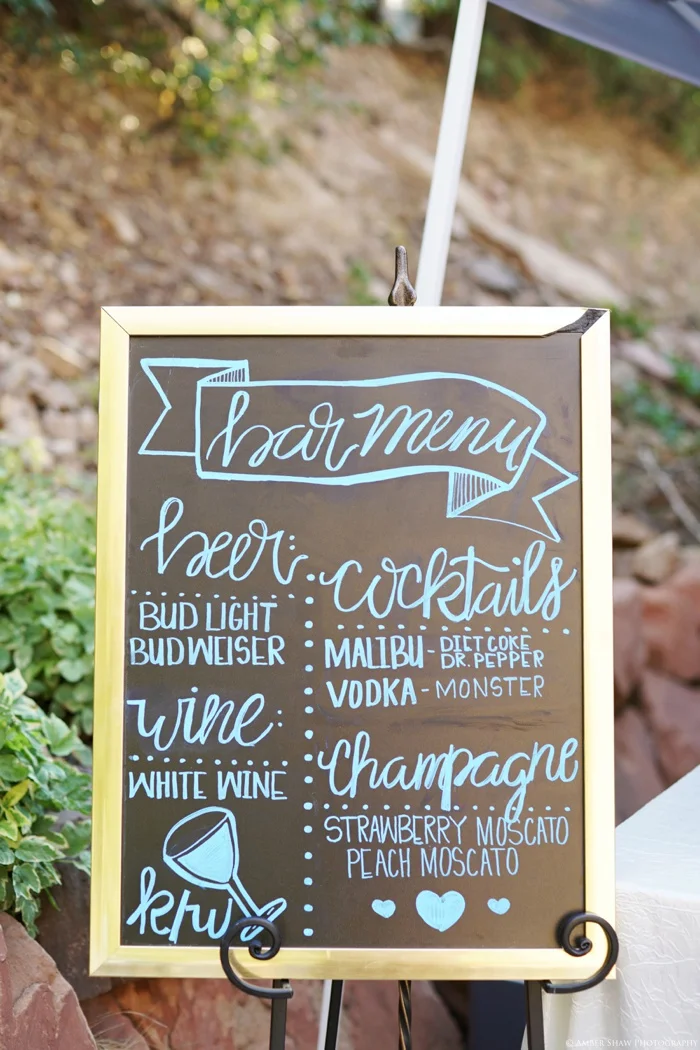 bar menu
beer:
BUD LIGHT
BUDWEISER
wine:
WHITE WINE
cocktails
MALIBU - DIET COKE
DR. PEPPER
VODKA - MONSTER
champagne
STRAWBERRY MOSCATO
PEACH MOSCATO
© AMBER SHAW PHOTOGRAPHY